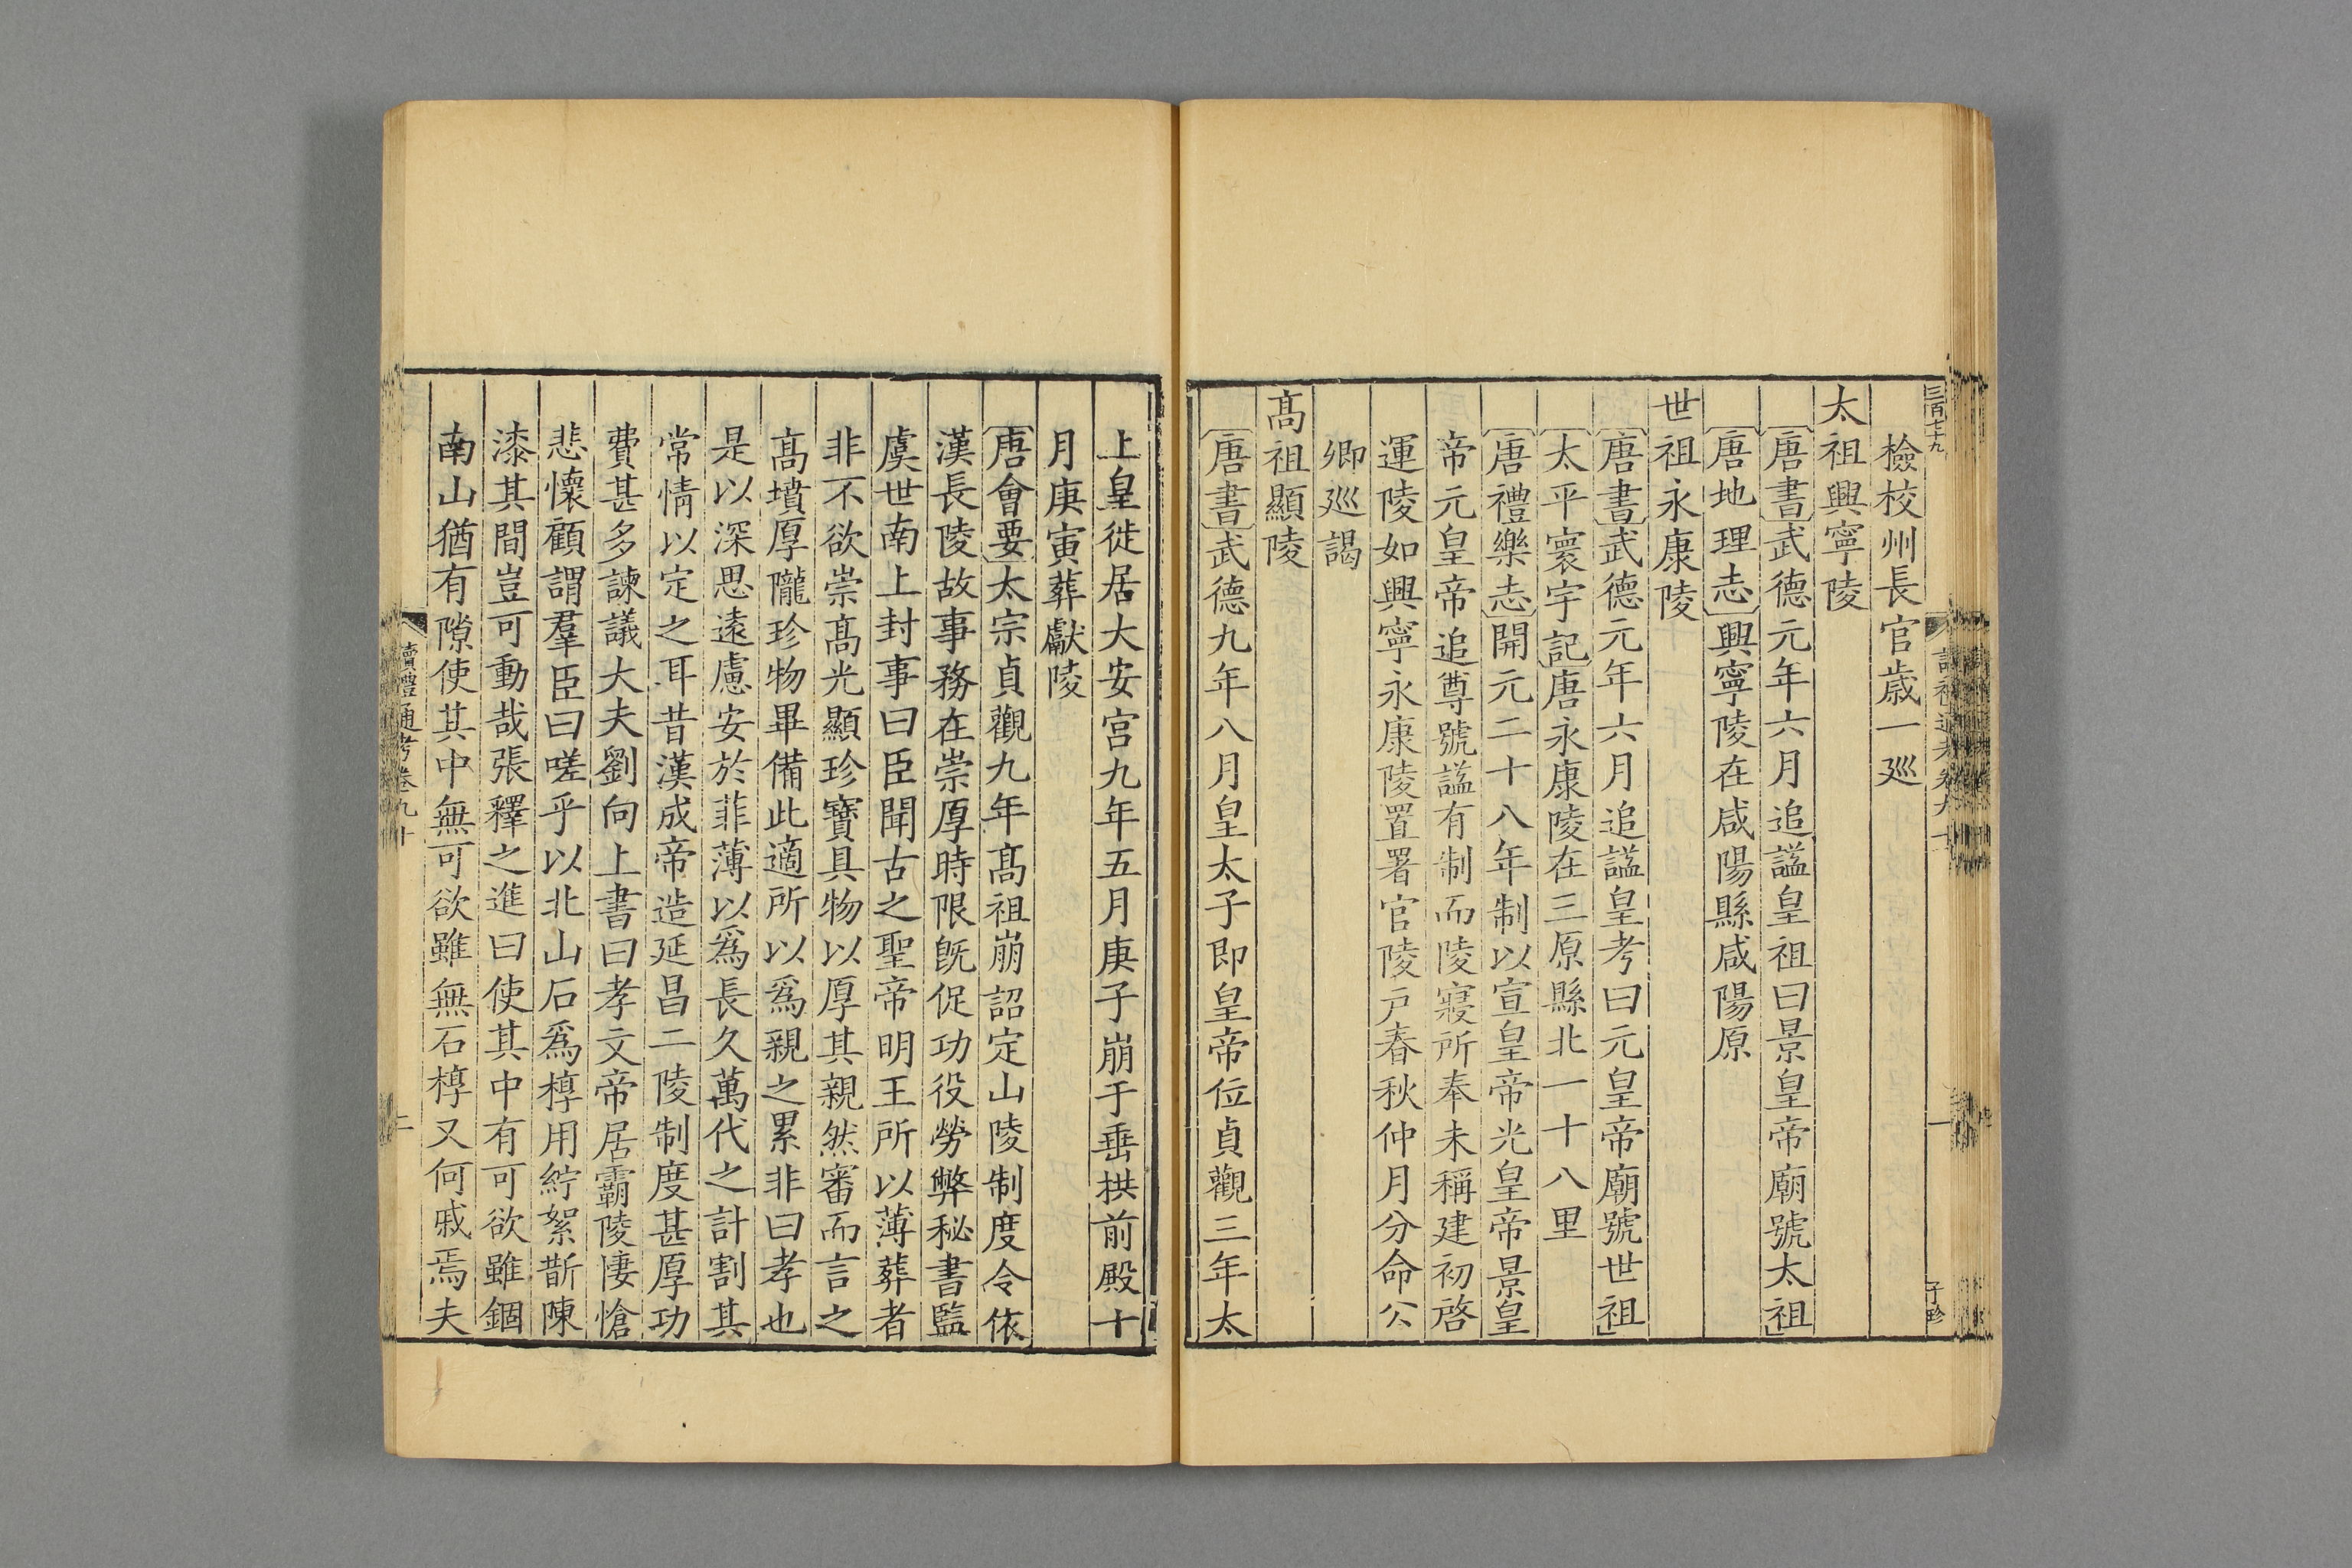 三百七十九
檢校州長官歲一廵
太祖興寧陵
〔唐書〕武德元年六月追謚皇祖曰景皇帝廟號太祖」
〔唐地理志〕興寧陵在咸陽縣咸陽原
世祖永康陵
〔唐書〕武德元年六月追謚皇考曰元皇帝廟號世祖」
〔太平寰宇記〕唐永康陵在三原縣北一十八里
〔唐禮樂志〕開元二十八年制以宣皇帝光皇帝景皇
帝元皇帝追尊號謚有制而陵寢所奉未稱建初啓
運陵如興寧永康陵置署官陵戶春秋仲月分命公
卿廵謁
髙祖顯陵
〔唐書〕武德九年八月皇太子即皇帝位貞觀三年太
上皇徙居大安宮九年五月庚子崩于垂拱前殿十
月庚寅葬獻陵
〔唐會要〕太宗貞觀九年髙祖崩詔定山陵制度令依
漢長陵故事務在崇厚時限旣促功役勞弊秘書監
虞世南上封事曰臣聞古之聖帝明王所以薄葬者
非不欲崇髙光顯珍寶具物以厚其親然審而言之
髙墳厚隴珍物畢備此適所以爲親之累非曰孝也
是以深思遠慮安於菲薄以爲長久萬代之計割其
常情以定之耳昔漢成帝造延昌二陵制度甚厚功
費甚多諫議大夫劉向上書曰孝文帝居霸陵悽愴
悲懷顧謂羣臣曰嗟乎以北山石爲椁用紵絮斮陳
漆其間豈可動哉張釋之進曰使其中有可欲雖錮
南山猶有隙使其中無可欲雖無石椁又何戚焉夫
讀禮通考卷九十
二